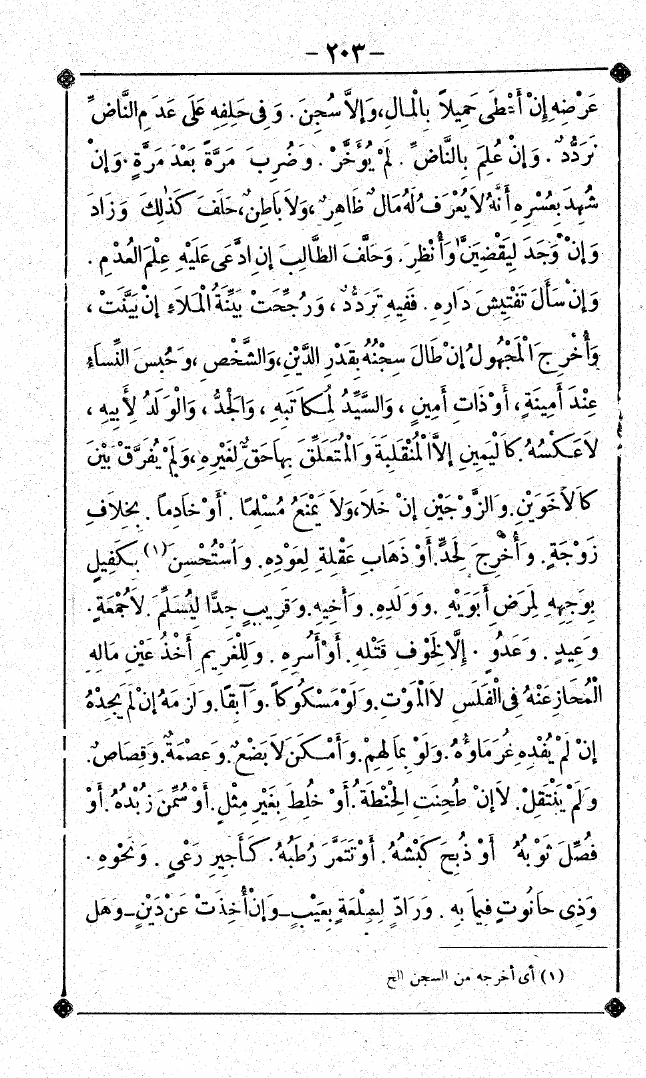 - ٢٠٣ -
عَرْضِهِ إِنْ أَعْطَى حَمِيلاً بِالْمَالِ، وَإِلاَّ سُجِنَ. وَفِى حَلِفِهِ عَلَى عَدَمِ النَّاضِّ
تَرَدُّدٌ. وَإِنْ عُلِمَ بِالنَّاضِّ. لَمْ يُؤَخَّرْ. وَضُرِبَ مَرَّةً بَعْدَ مَرَّةٍ. وَإِنْ
شُهِدَ بِعُسْرِهِ أَنَّهُ لاَ يُعْرَفُ لَهُ مَالٌ ظَاهِرٌ، وَلاَ بَاطِنٌ، حَلَفَ كَذٰلِكَ وَزَادَ
وَإِنْ وَجَدَ لَيَقْضِيَنَّ، وَأُنْظِرَ. وَحَلَّفَ الطَّالِبَ إِنِ ادَّعَى عَلَيْهِ عِلْمَ الْعُدْمِ.
وَإِنْ سَأَلَ تَفْتِيشَ دَارِهِ. فَفِيهِ تَرَدُّدٌ، وَرُجِّحَتْ بَيِّنَةُ الْمَلاَءِ إِنْ بَيَّنَتْ،
وَأُخْرِجَ الْمَجْهُولُ إِنْ طَالَ سِجْنُهُ بِقَدْرِ الدَّيْنِ، وَالشَّخْصِ، وَحُبِسَ النِّسَاءُ
عِنْدَ أَمِينَةٍ، أَوْ ذَاتِ أَمِينٍ، وَالسَّيِّدُ لِمُكَاتَبِهِ، وَالْجَدُّ، وَالْوَلَدُ لِأَبِيهِ،
لاَ عَكْسُهُ. كَالْيَمِينِ إِلاَّ الْمُنْقَلِبَةَ وَالْمُتَعَلِّقَ بِهَا حَقٌّ لِغَيْرِهِ، وَلَمْ يُفَرَّقْ بَيْنَ
كَالأَخَوَيْنِ. وَالزَّوْجَيْنِ إِنْ خَلاَ، وَلاَ يَمْنَعُ مُسْلِمًا. أَوْ خَادِمًا. بِخِلاَفِ
زَوْجَةٍ. وَأُخْرِجَ لِحَدٍّ. أَوْ ذَهَابِ عَقْلِهِ لِعَوْدِهِ. وَاسْتُحْسِنَ (١) بِكَفِيلٍ
بِوَجْهِهِ لِمَرَضِ أَبَوَيْهِ. وَوَلَدِهِ. وَأَخِيهِ. وَقَرِيبٍ جِدًّا لِيُسَلِّمَ. لاَ جُمُعَةٍ.
وَعِيدٍ. وَعَدُوٍّ. إِلاَّ لِخَوْفِ قَتْلِهِ. أَوْ أَسْرِهِ. وَلِلْغَرِيمِ أَخْذُ عَيْنِ مَالِهِ
الْمُحَازِ عَنْهُ فِى الْفَلَسِ لاَ الْمَوْتِ. وَلَوْ مَسْكُوكاً. وَآبِقًا. وَلَزِمَهُ إِنْ لَمْ يَجِدْهُ
إِنْ لَمْ يَفْدِهِ غُرَمَاؤُهُ. وَلَوْ بِمَالِهِمْ. وَأَمْكَنَ لاَ بُضْعٌ. وَعِصْمَةٌ. وَقِصَاصٌ.
وَلَمْ يَنْتَقِلْ. لاَ إِنْ طُحِنَتِ الْحِنْطَةُ. أَوْ خُلِطَ بِغَيْرِ مِثْلٍ. أَوْ سُمِّنَ زُبْدُهُ. أَوْ
فُصِّلَ ثَوْبُهُ أَوْ ذُبِحَ كَبْشُهُ. أَوْ تَتَمَّرَ رُطَبُهُ. كَأَجِيرِ رَعْىٍ. وَنَحْوِهِ.
وَذِى حَانُوتٍ فِيمَا بِهِ. وَرَادٍّ لِسِلْعَةٍ بِعَيْبٍ - وَإِنْ أُخِذَتْ عَنْ دَيْنٍ - وَهَل
(١) أى أخرجه من السجن الخ